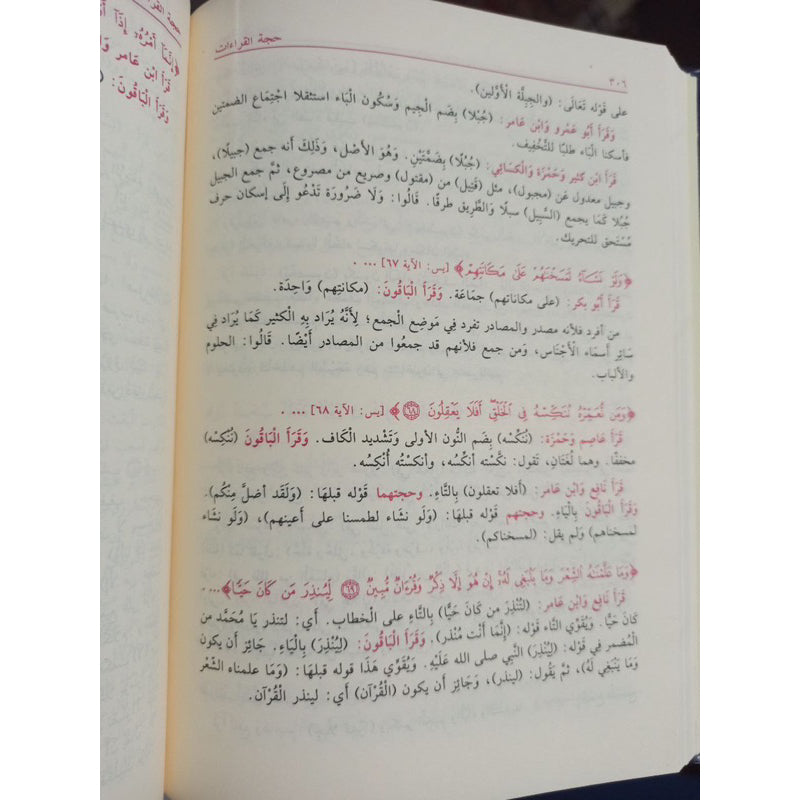 حجة القراءات
٣٠٦
على قَوْله تَعَالَى: (والجِبِلَّةَ الْأَوَّلين).
وَقَرَأَ أَبُو عَمْرو وَابْن عَامر: (جُبْلا) بِضَم الْجِيم وَسُكُون الْبَاء استثقلا اجْتِمَاع الضمتين
فأسكنا الْبَاء طلبًا للتَّخْفِيف.
قَرَأَ ابْن كثير وَحَمْزَة وَالْكسَائِيّ: (جُبُلًا) بِضَمَّتَيْنِ. وَهُوَ الأصْل، وَذَلِكَ أَنه جمع (جبيلًا)،
وجبيل معدول عَن (مجبول)، مثل (قَتِيل) من (مقتول) وصريع من مصروع، ثمَّ جمع الجبيل
جُبُلا كَمَا يجمع (السَّبِيل) سبلًا وَالطَّرِيق طرقًا. قَالُوا: وَلَا ضَرُورَة تَدْعُو إلَى إسكان حرف
مُسْتَحق للتحريك.
﴿وَلَوْ نَشَاءُ لَمَسَخْنَهُمْ عَلَى مَكَانَتِهِمْ﴾ [يس: الآية ٦٧] ... .
قَرَأَ أَبُو بكر: (على مكاناتهم) جمَاعَة. وَقَرَأَ الْبَاقُونَ: (مكانتِهم) وَاحِدَة.
من أفرد فلأنه مصدر والمصادر تفرد فِي مَوضِع الجمع؛ لِأَنَّهُ يُرَاد بِهِ الْكثير كَمَا يُرَاد فِي
سَائِر أَسمَاء الْأَجْنَاس، وَمن جمع فلأنهم قد جمعُوا من المصادر أَيْضًا. قَالُوا: الحلوم
والألباب.
﴿وَمَن نُّعَمِّرْهُ نُنَكِّسْهُ فِى الْخَلْقِ أَفَلَا يَعْقِلُونَ ٦٨﴾ [يس: الآية ٦٨] ... .
قَرَأَ عَاصِم وَحَمْزَة: (نُنَكِّسْه) بِضَم النُّون الأولى وَتَشْديد الْكَاف. وَقَرَأَ الْبَاقُونَ (نَنْكِسْه)
مخففًا. وهما لُغَتَانِ، تَقول: نَكَّسْته أنكّسُه، وأنكستُه أُنْكِسُه.
قَرَأَ نَافِع وَابْن عَامر: (أفلا تعقلون) بِالتَّاءِ. وحجتهما قَوْله قبلهَا: (وَلَقَد أضلّ مِنْكُم).
وَقَرَأَ الْبَاقُونَ بِالْيَاءِ. وحجتهم قَوْله قبلهَا: (وَلَو نشَاء لطمسنا على أَعينهم)، (وَلَو نشَاء
لمسخناهم) وَلم يقل: (لمسخناكم).
﴿وَمَا عَلَّمْنَهُ الشِّعْرَ وَمَا يَنْبَغِى لَهُ إِنْ هُوَ إِلَّا ذِكْرٌ وَقُرْءَانٌ مُّبِينٌ ٦٩ لِّيُنذِرَ مَن كَانَ حَيًّا﴾... .
قَرَأَ نَافِع وَابْن عَامر: (لتُنْذِرَ من كَانَ حَيًّا) بِالتَّاءِ على الْخطاب. أَي: لتنذر يَا مُحَمَّد من
كَانَ حَيًّا. وَيُقَوِّي التَّاء قَوْله: (إِنَّمَا أَنْت مُنْذر). وَقَرَأَ الْبَاقُونَ: (لِيُنْذِرَ) بِالْيَاءِ. جَائِز أَن يكون
الْمُضمر فِي قَوْله: (لِيُنْذِرَ) النَّبِي صلى الله عَلَيْهِ. وَيُقَوِّي هَذَا قوله قبلهَا: (وَمَا علمناه الشّعْر
وَمَا يَنْبَغِي لَهُ)، ثمَّ يَقُول: (لينذر)، وَجَائِز أَن يكون (الْقُرْآن) أَي: لينذر الْقُرْآن.
حجة القر
﴿إِنَّمَا أَمْرُهُ إِذَا أَ
قَرَأَ ابْن عَامر وَا
وَقَرَأَ الْبَاقُونَ: (